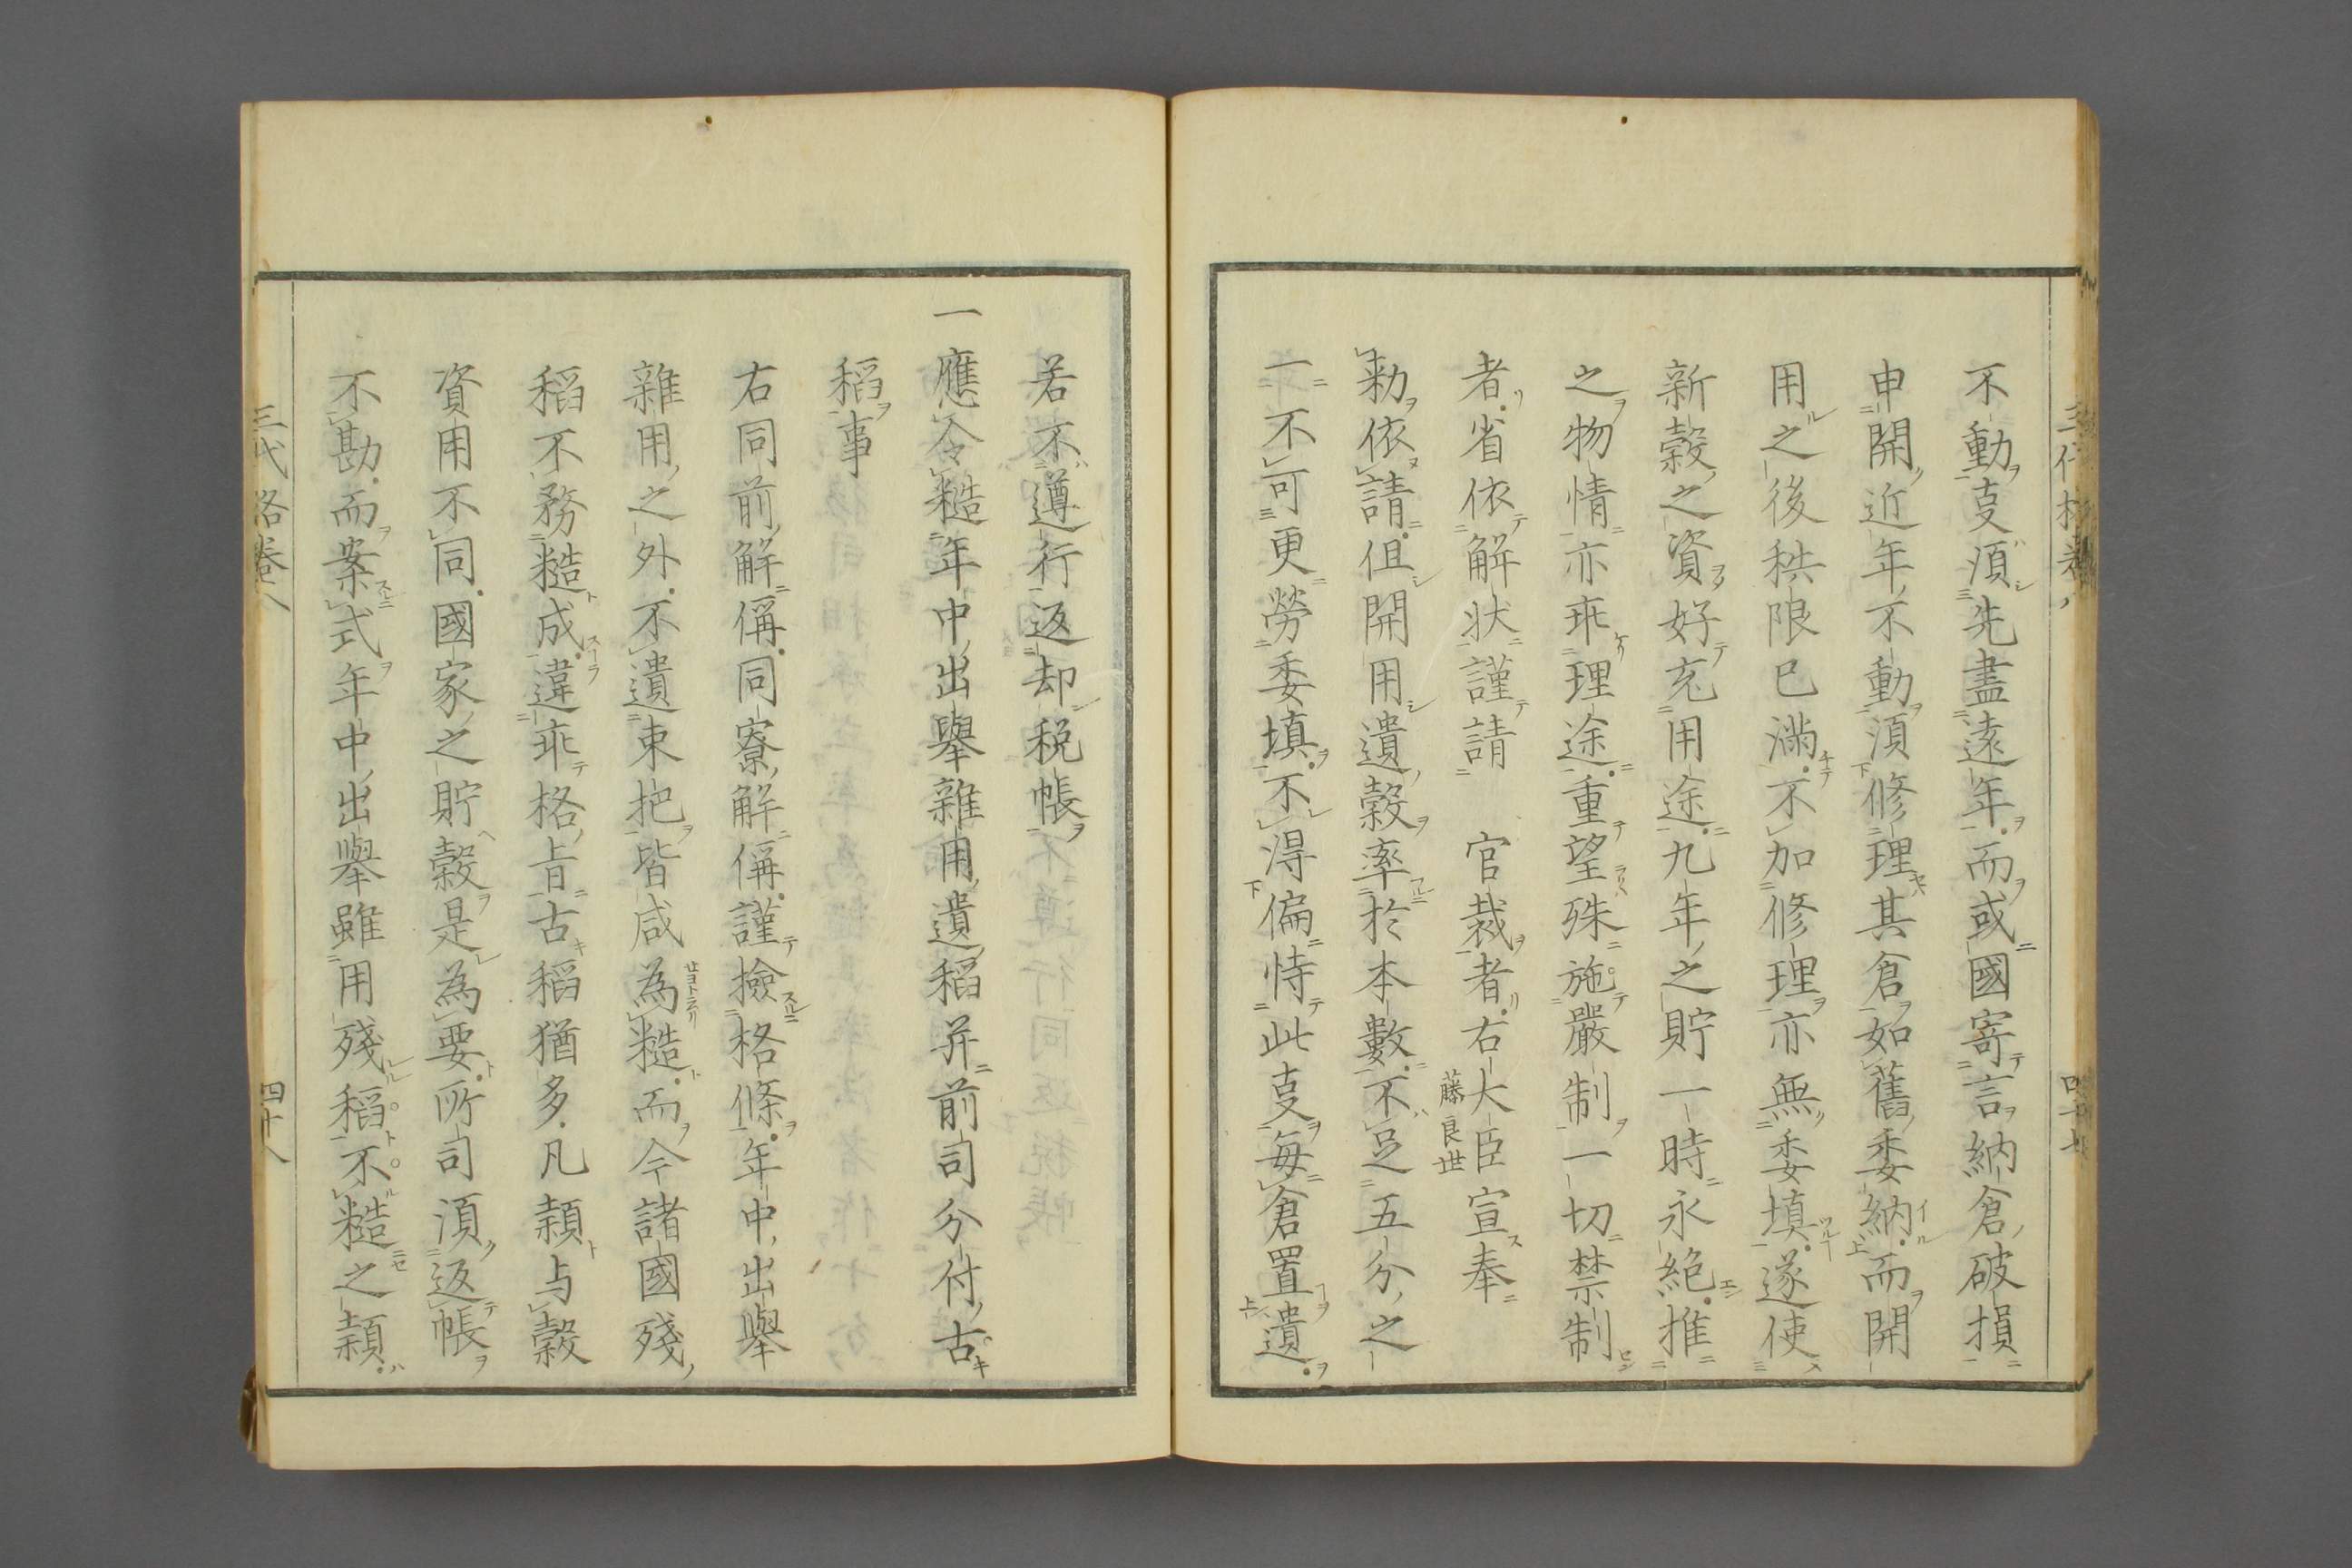 不動㕝湏先盡遠年而或國寄言納倉破損
申開近年不動湏修理其倉如舊委納而開
用之後秩限已滿不加修理亦無委填遂使
新穀之資好充用途九年之貯一時永絶推
之物情亦乖理途重望殊施嚴制一切禁制
者省依解狀謹請 官裁者右大臣宣奉
藤良世
勅依請但開用遺穀率於本數不足五分之
一不可更勞委填不淂偏恃此㕝每倉置遺
若不遵行返却税帳
一應令糙年中出舉雜用遺稻并前司分付古
稻事
右同前解偁同寮解偁謹撿格條年中出舉
雜用之外不遺束把皆咸為糙而今諸國殘
稻不務糙成違乖格旨古稻猶多凡穎与穀
資用不同國家之貯穀是為要所司湏返帳
不勘而案式年中出舉雖用殘稻不糙之穎
三代格卷八
四十八